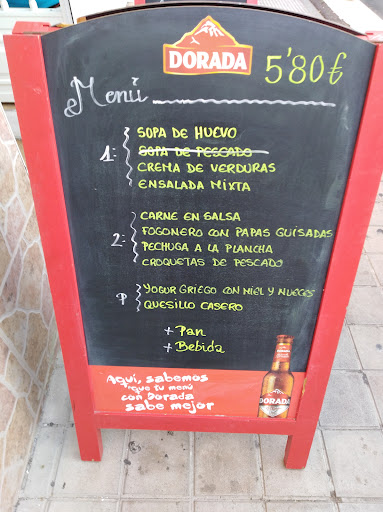 DORADA
5'80€
Menú
1:
SOPA DE HUEVO
SOPA DE PESCADO
CREMA DE VERDURAS
ENSALADA MIXTA
2:
CARNE EN SALSA
FOGONERO CON PAPAS GUISADAS
PECHUGA A LA PLANCHA
CROQUETAS DE PESCADO
P
YOGUR GRIEGO CON MIEL Y NUECES
QUESILLO CASERO
+ Pan
+ Bebida
Aquí, sabemos
que tu menú
con Dorada
sabe mejor
DORADA